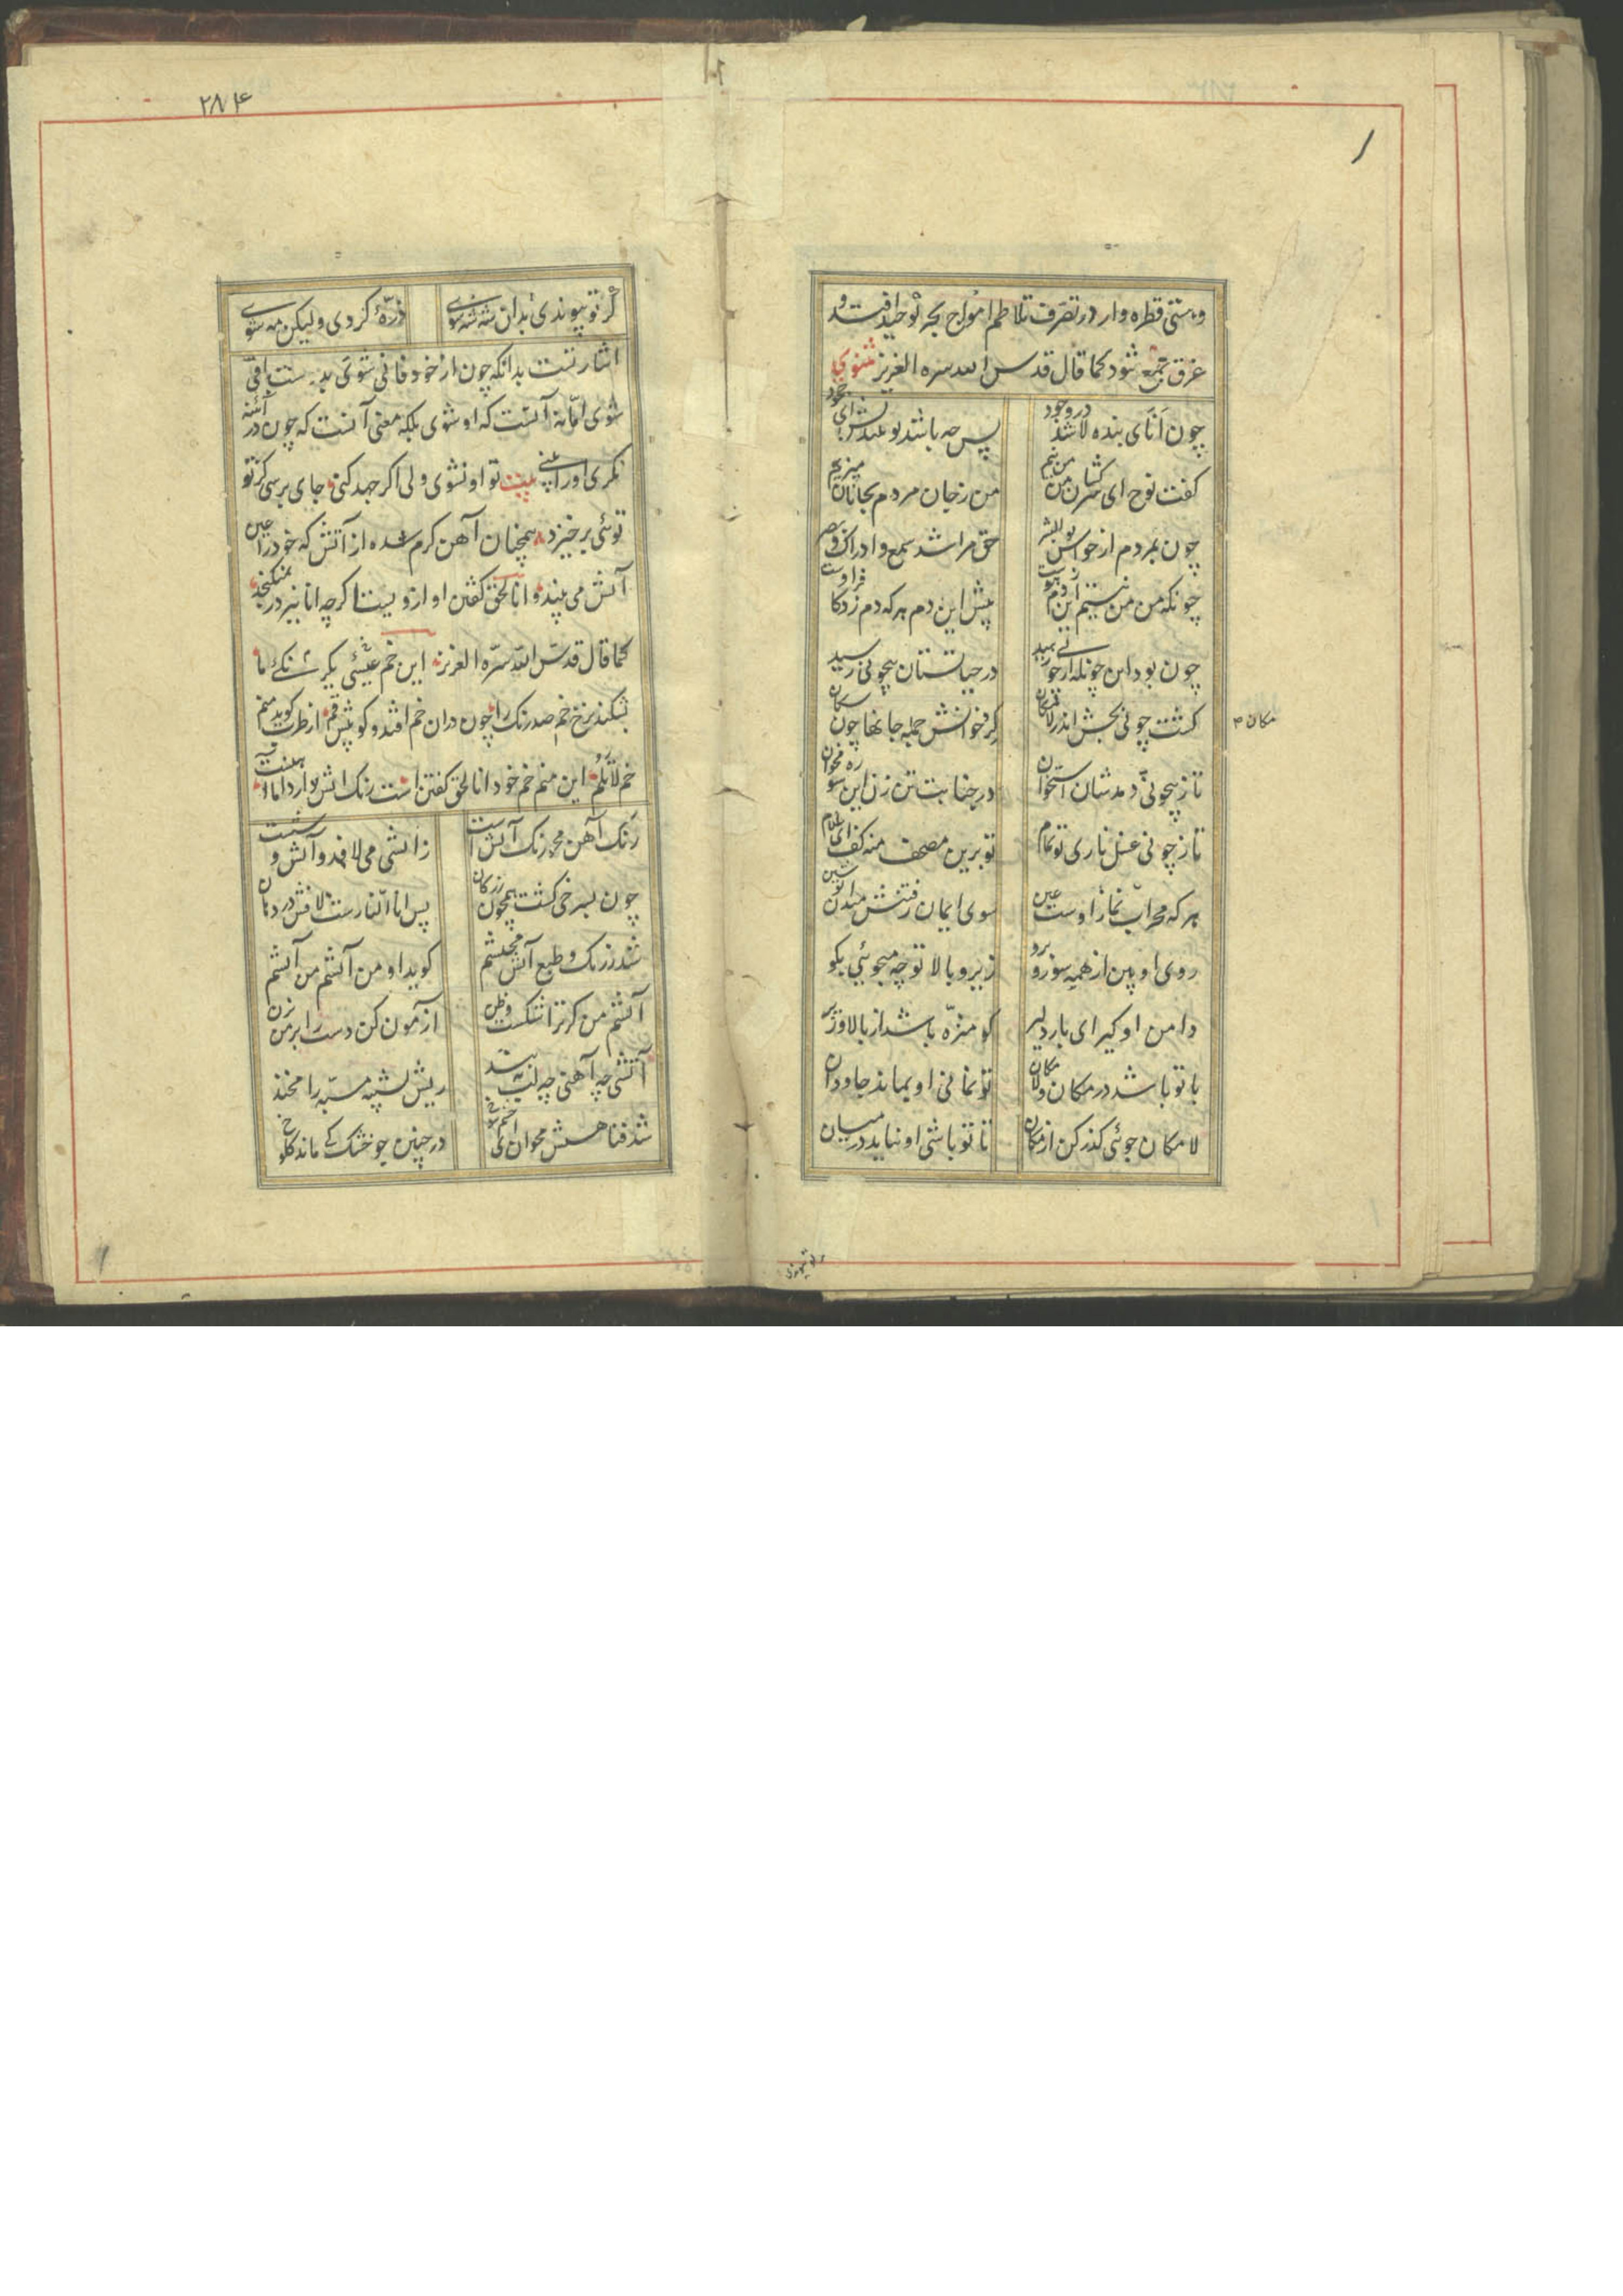 ۱
وهستی قطره وار در تصرف تلاطم امواج بحر توحید افتد و
غرق جمع شود کما قال قدس الله سره العزیز مثنوی
چون اَنَای بنده لا شد در وجود پس چه باشد تو
گفت نوح ای سرکشان من من نیم من ز جان مردم بجانان میزیم
چون بمردم از حواس بوالبشر حق مرا شد سمع و ادراک و بصر
چونکه من من نیستم این دم ز هوست پیش این دم هر که دم زد کافر اوست
چون بود این چون که از خود رسید در حیاتستان بیچونی رسید
گشت چونی بخش اندر لامکان گرد خوانش جمله جانها چون سگان
مکان م
تا ز بیچونی دهدشان استخوان در جنابت تن زن این سوره مخوان
تا ز چونی غسل ناری تو تمام تو برین مصحف منه کف ای غلام
هر که محراب نمازاوست عین سوی ایمان رفتنش میدان تو شین
روی او بین از همه سو زو برو زیر و بالا تو چه میجوئی بگو
دامن او گیر ای یار دلیر کو منزّه باشد از بالا و زیر
با تو باشد در مکان و لامکان تو نمانی او بماند جاودان
لا مکان جوئی گذر کن از مکان تا تو باشی او نیاید در میان
۲۸۴
گر تو پیوندی بدان شه شه شوی ذرّهٔ گردی ولیکن مه شوی
اشارتست بدانکه چون از خود فانی شوی بدوست باقی
شوی امّا نه آنست که او شوی بلکه معنی آنست که چون در آئنه
نگری او را بینی بیت تو او نشوی ولی اگر جهد کنی جای برسی کز تو
توئی برخیزد همچنان آهن گرم شده از آتش که خود را عین
آتش می بیند و انا الحق گفتن او ازو نیست اگرچه انا نیز در نمیگنجد
کما قال قدس الله سرّه العزیز این خم عیسئی یکرنگئ ما
بشکند نرخ خم صد رنگ را چون دران خم افتد و گوییش قم از طرب گوید منم
خم لاتلُم این منم خم خود انا الحق گفتن است رنگ آتش دارد اما آهنست
رنگ آهن محو رنگ آتش است ز آتشی می لافد و آتش وشست
چون بسرخی گشت همچون زر کان پس انا النارست لافش در دهان
شد ز رنگ و طبع آتش محتشم گوید او من آتشم من آتشم
آتشم من گر ترا شکست و ظن آزمون کن دست را بر من بزن
آتشی چه آهنی چه لب ببند ریش تشبیه مشبّه را مخند
شد فنا هستش مخوان ای چشم شوخ در چنین جو خشک کی ماند کلوخ